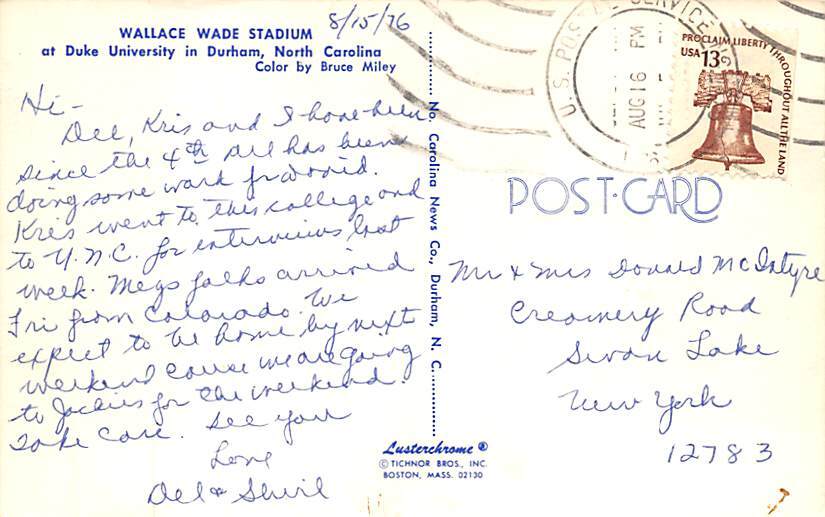 WALLACE WADE STADIUM
at Duke University in Durham, North Carolina
Color by Bruce Miley
8/15/76
Hi-
Del, Kris and I have been
since the 4th Del has been
doing some work for David.
Kris went to this college and
to U.N.C. for interviews last
week. Megs folks arrived
Fri from Colorado. We
expect to be home by next
weekend cause we are going
to Jackies for the weekend.
Take care. See you
Love
Del &
No. Carolina News Co., Durham, N. C.
Lusterchrome ®
© TICHNOR BROS., INC.
BOSTON, MASS. 02130
U.S. POSTAL SERVICE
AUG 16 PM
PROCLAIM LIBERTY THROUGHOUT ALL THE LAND
USA 13c
POST-CARD
Mr & Mrs Donald McIntyre
Creamery Road
Swan Lake
New York
12783